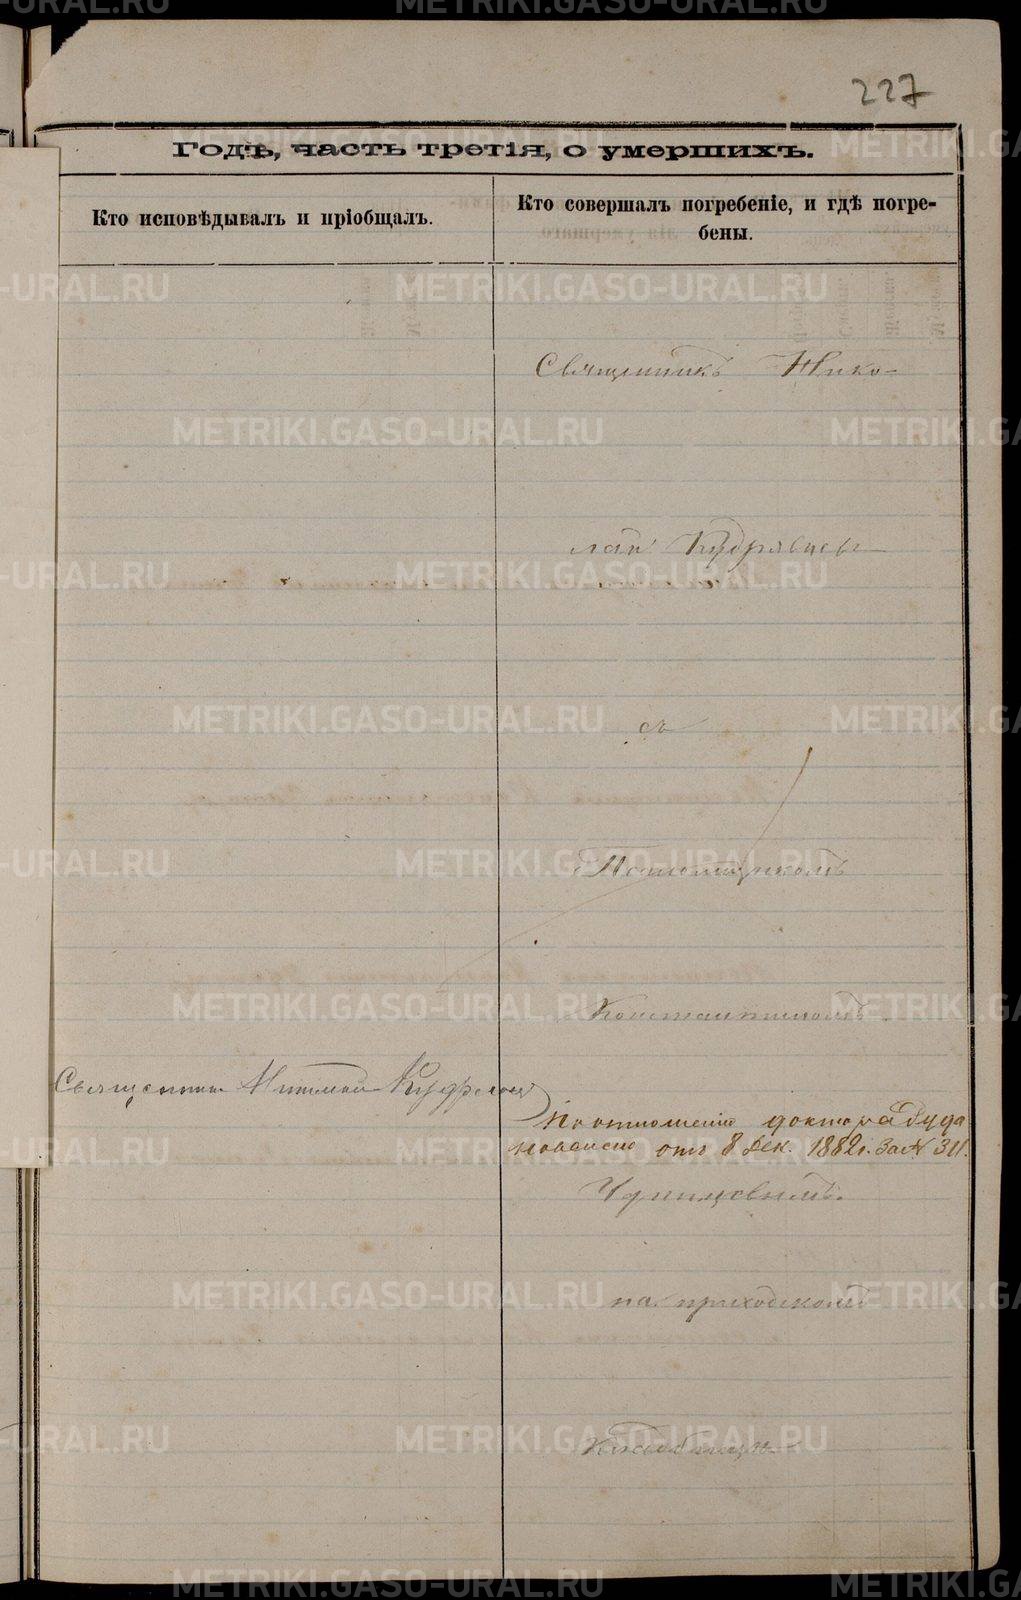 227
Годъ, часть третія, о умершихъ.
Кто исповѣдывалъ и пріобщалъ.
Кто совершалъ погребеніе, и гдѣ погре-
бены.
Священникъ Нико-
лай Кудрявцевъ
съ
Псаломщикомъ
Константиномъ
Священникъ Николай
По отношенію доктора
отъ 8 Дек. 1882 г. за № 311.
на приходскомъ
кладбищѣ
METRIKI.GASO-URAL.RU